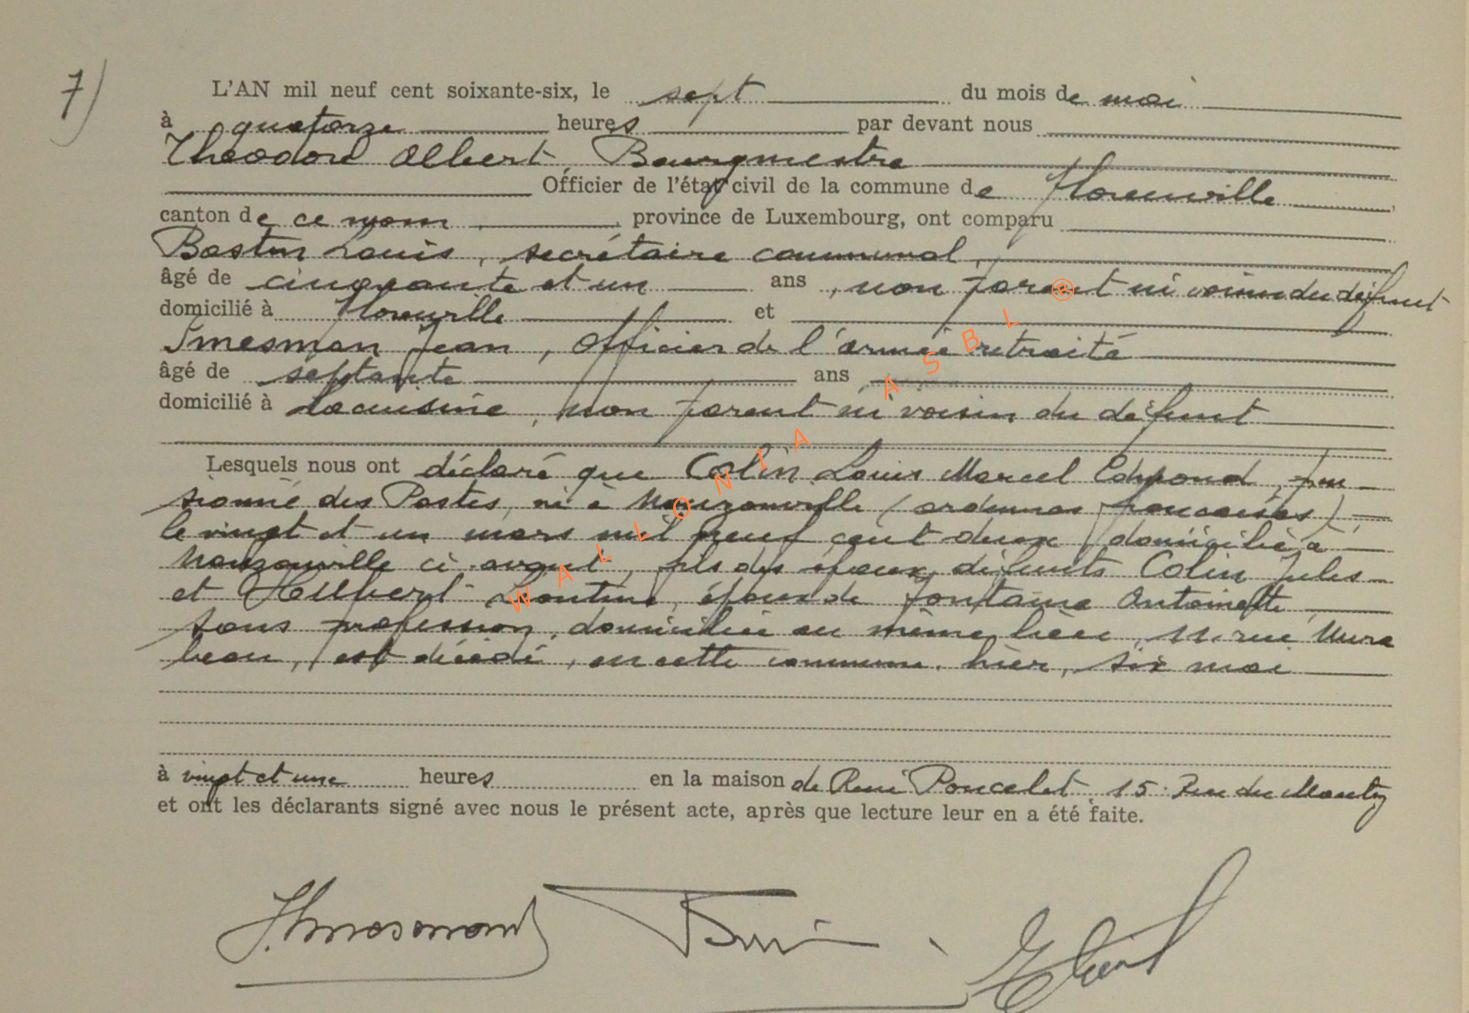 7)
L'AN mil neuf cent soixante-six, le sept du mois de mai
à quatorze heures par devant nous
Théodore Albert, Bourgmestre
Officier de l'état civil de la commune de Florenville
canton de ce nom, province de Luxembourg, ont comparu
Bastin Louis, secrétaire communal,
âgé de cinquante et un ans, non parent ni voisin du défunt
domicilié à Florenville et
Smesman Jean, Officier de l'armée retraité
âgé de septante ans
domicilié à Lacuisine, non parent ni voisin du défunt
Lesquels nous ont déclaré que Colin Louis Marcel Edmond, pen
sionné des Postes, né à Nouzonville (ardennes françaises)
le vingt et un mars mil neuf cent deux, domicilié à
Nouzonville ci-avant, fils des époux, défunts Colin Jules
et Hilbert Léontine, époux de Fontaine Antoinette
sans profession, domiciliée au même lieu, 11. rue Mira
beau, est décédé, en cette commune. hier, six mai
à vingt et une heures en la maison de René Poncelet 15. Rue du
et ont les déclarants signé avec nous le présent acte, après que lecture leur en a été faite.
WALLONIA ASBL ®